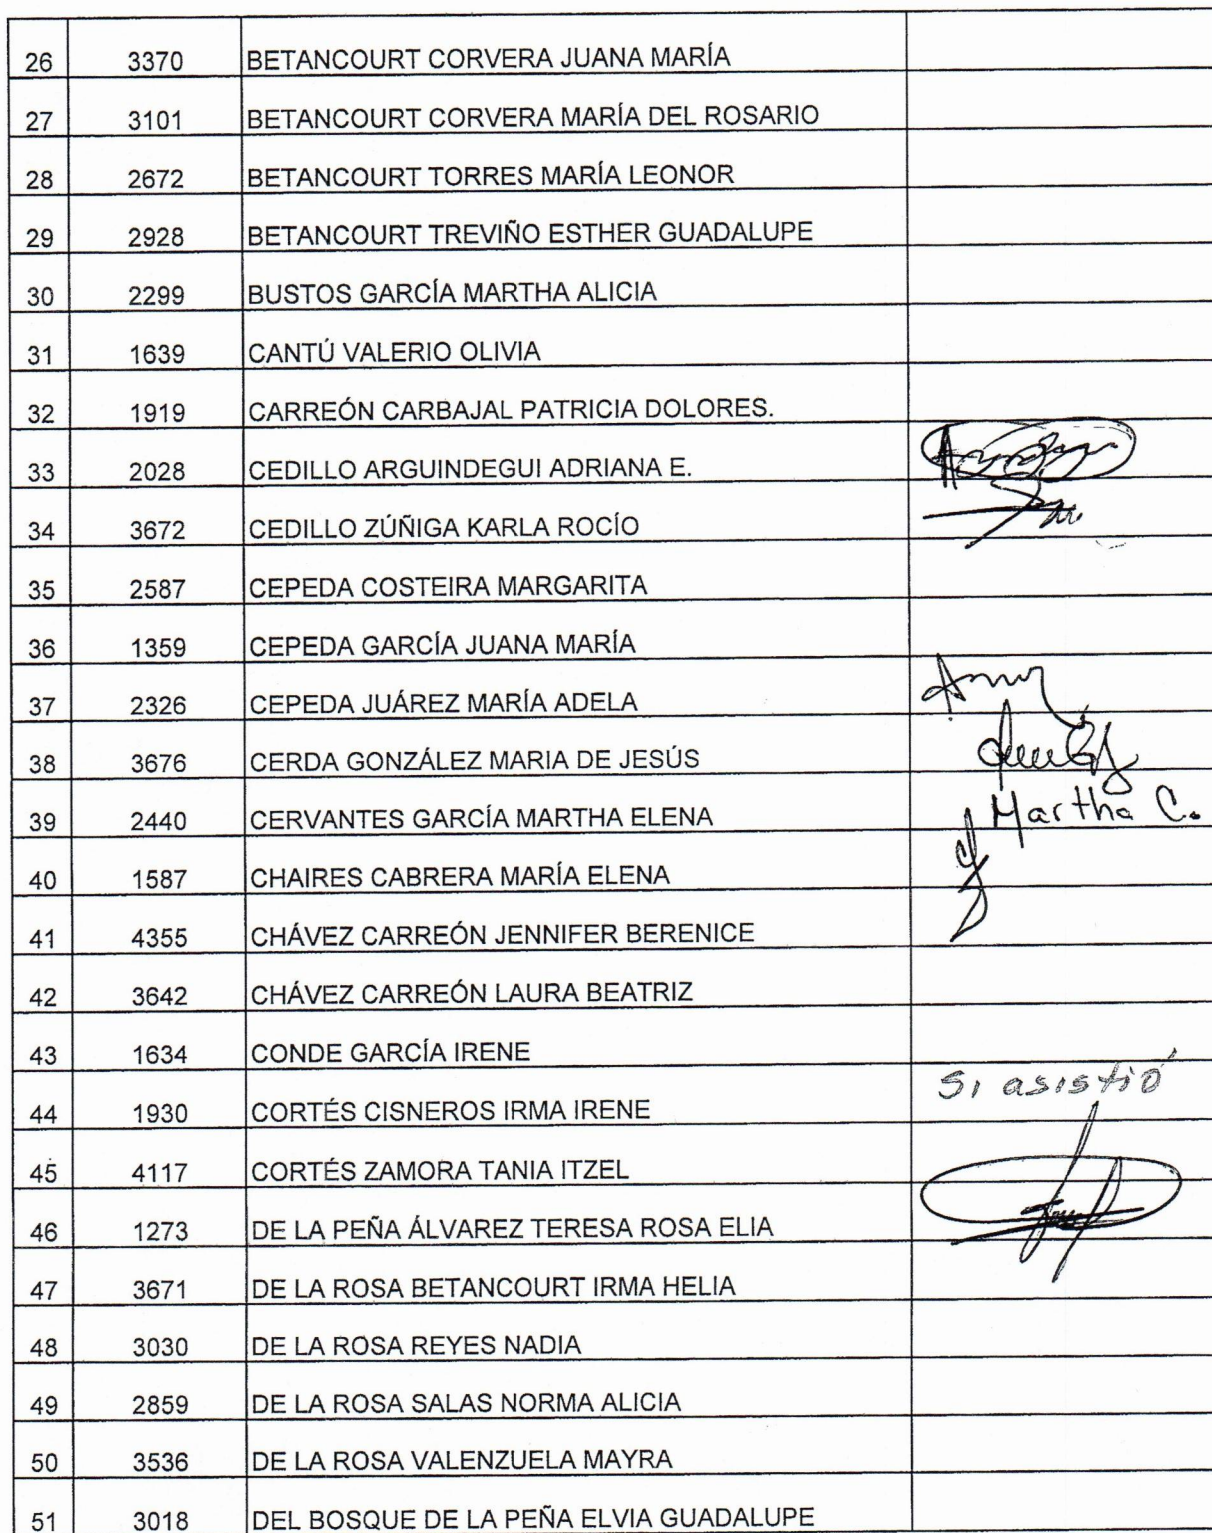 26 3370 BETANCOURT CORVERA JUANA MARÍA
27 3101 BETANCOURT CORVERA MARÍA DEL ROSARIO
28 2672 BETANCOURT TORRES MARÍA LEONOR
29 2928 BETANCOURT TREVIÑO ESTHER GUADALUPE
30 2299 BUSTOS GARCÍA MARTHA ALICIA
31 1639 CANTÚ VALERIO OLIVIA
32 1919 CARREÓN CARBAJAL PATRICIA DOLORES.
33 2028 CEDILLO ARGUINDEGUI ADRIANA E.
34 3672 CEDILLO ZÚÑIGA KARLA ROCÍO
35 2587 CEPEDA COSTEIRA MARGARITA
36 1359 CEPEDA GARCÍA JUANA MARÍA
37 2326 CEPEDA JUÁREZ MARÍA ADELA
38 3676 CERDA GONZÁLEZ MARIA DE JESÚS
39 2440 CERVANTES GARCÍA MARTHA ELENA Martha C.
40 1587 CHAIRES CABRERA MARÍA ELENA
41 4355 CHÁVEZ CARREÓN JENNIFER BERENICE
42 3642 CHÁVEZ CARREÓN LAURA BEATRIZ
43 1634 CONDE GARCÍA IRENE
44 1930 CORTÉS CISNEROS IRMA IRENE Si asistió
45 4117 CORTÉS ZAMORA TANIA ITZEL
46 1273 DE LA PEÑA ÁLVAREZ TERESA ROSA ELIA
47 3671 DE LA ROSA BETANCOURT IRMA HELIA
48 3030 DE LA ROSA REYES NADIA
49 2859 DE LA ROSA SALAS NORMA ALICIA
50 3536 DE LA ROSA VALENZUELA MAYRA
51 3018 DEL BOSQUE DE LA PEÑA ELVIA GUADALUPE